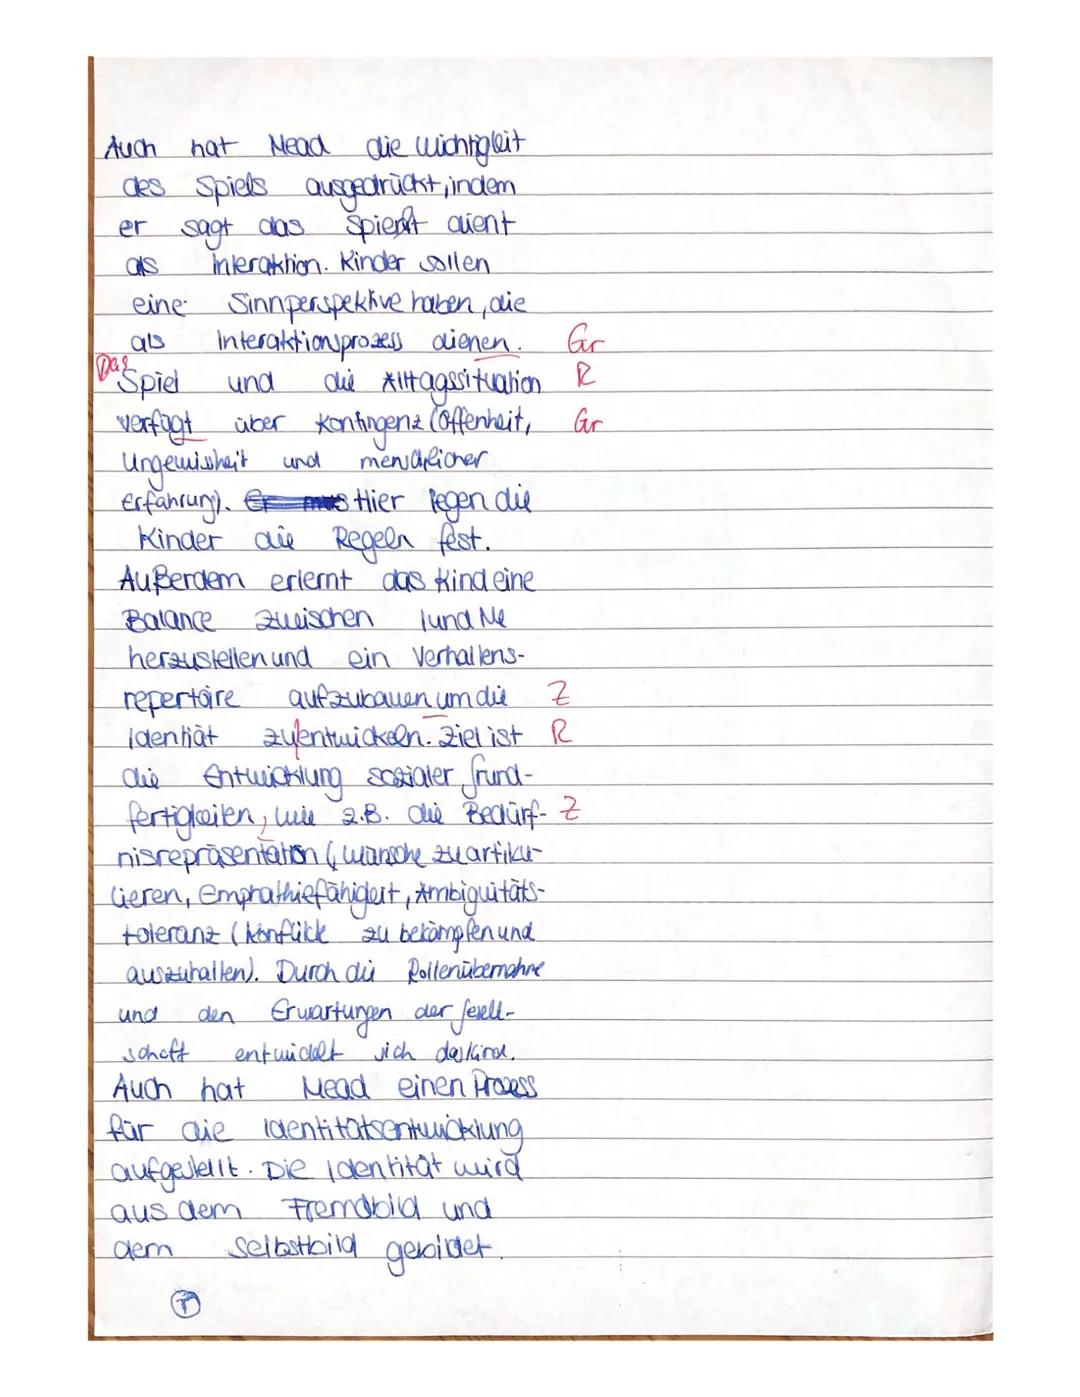 Auch hat Mead die Wichtigkeit
des Spiels ausgedrückt, indem
er sagt das Spielt dient
als Interaktion. Kinder sollen
eine Sinnperspektive haben, die
als Interaktionsprozess dienen. Gr
Das Spiel und die Alltagssituation R
verfügt über Kontingenz (Offenheit, Gr
Ungewissheit und menschlicher
Erfahrung). Hier legen die
Kinder die Regeln fest.
Außerdem erlernt das Kind eine
Balance zwischen I und Me
herzustellen und ein Verhaltens-
repertoire aufzubauen um die Z
Identiät zu entwickeln. Ziel ist R
die Entwicklung sozialer Grund-
fertigkeiten, wie z.B. die Bedürf- Z
nisrepräsentation (Wünsche zu artiku-
lieren, Emphathiefähigkeit, Ambiguitäts-
toleranz (Konflikte zu bekämpfen und
auszuhalten). Durch die Rollenübernahme
und den Erwartungen der Gesell-
schaft entwickelt sich das Kind.
Auch hat Mead einen Prozess
für die Identitätsentwicklung
aufgestellt. Die Identität wird
aus dem Fremdbild und
dem Selbstbild gebildet.